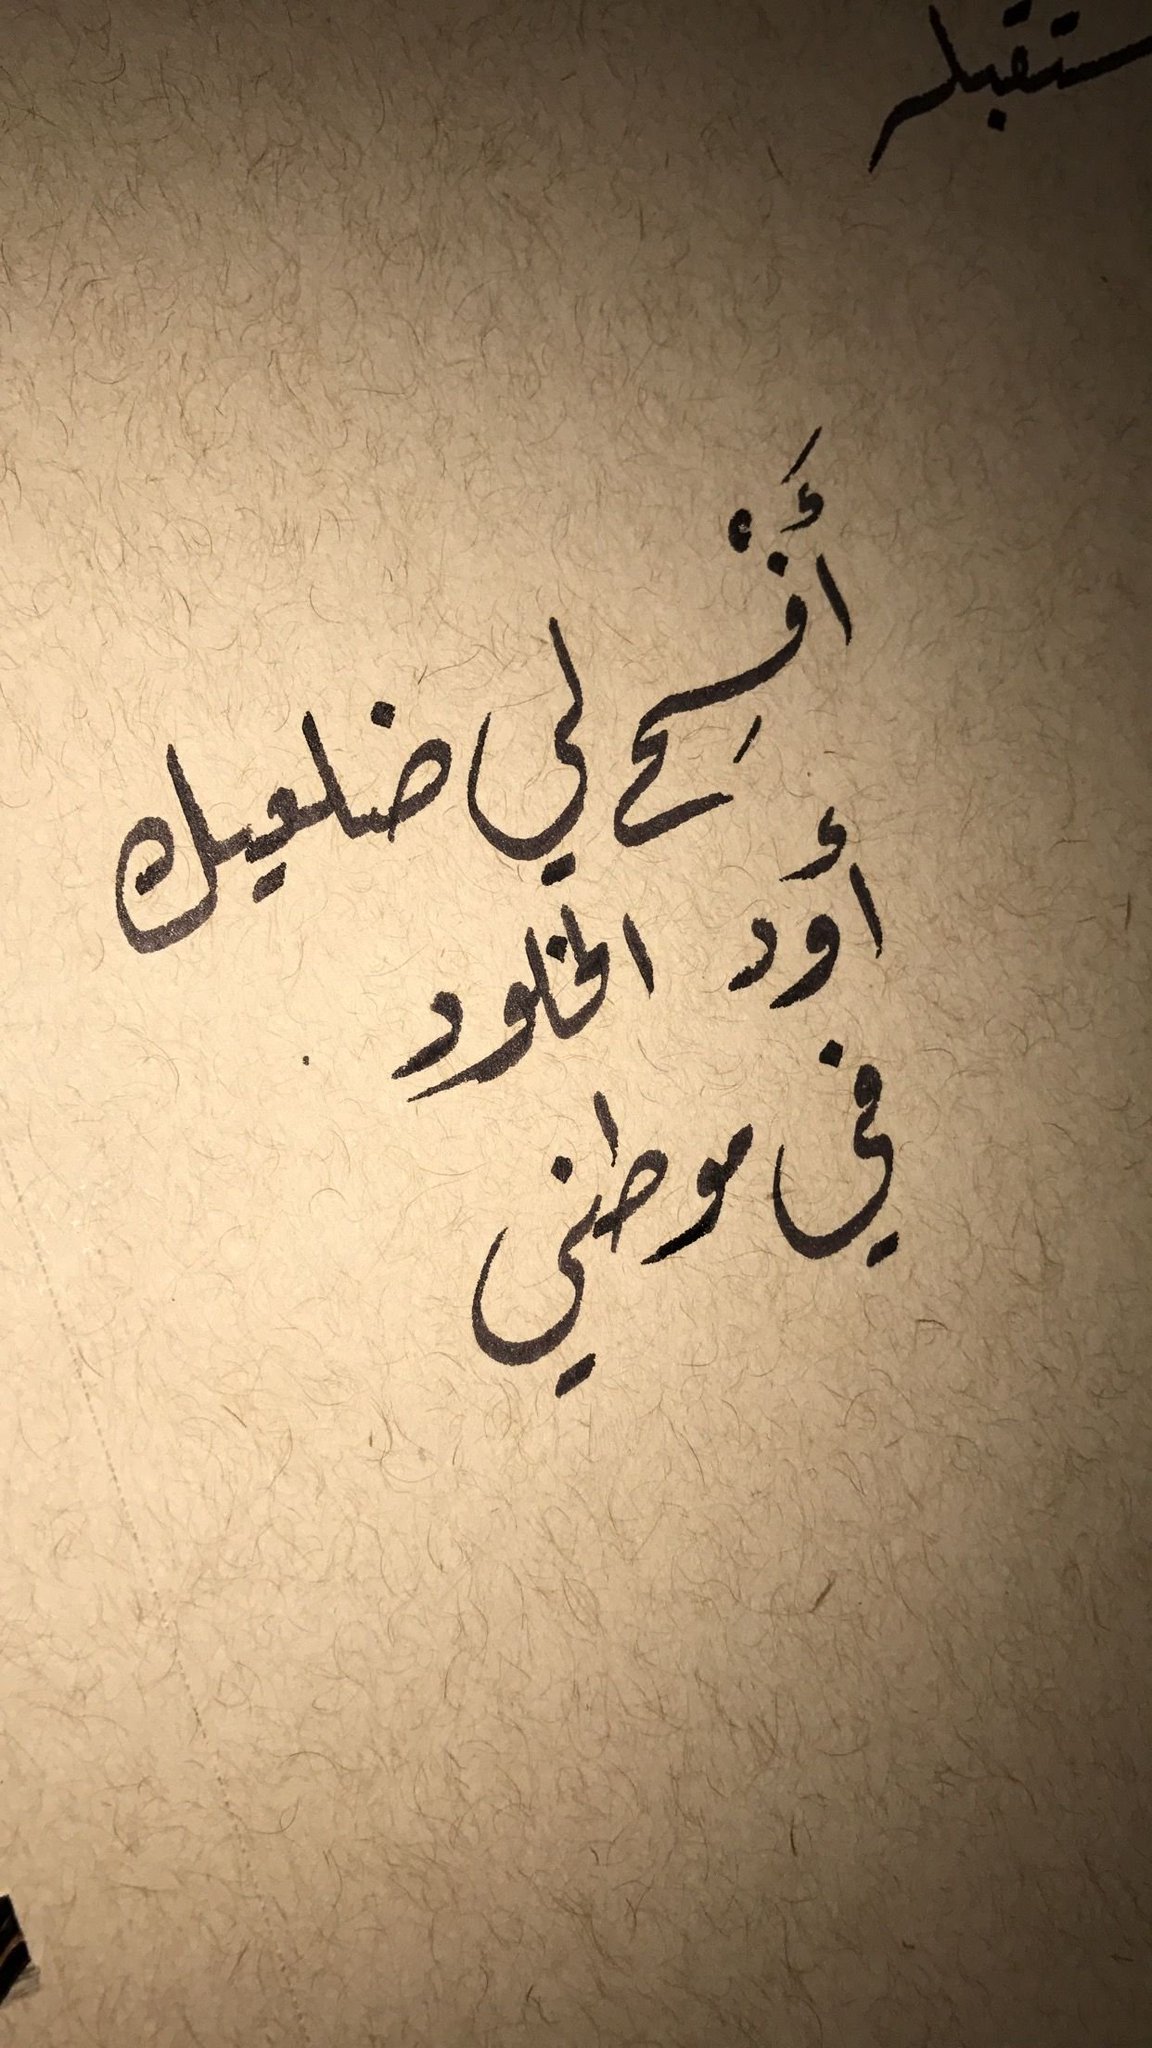 ستقبل
أَفْسِح لي ضلعيك
أود الخلود
في موطني